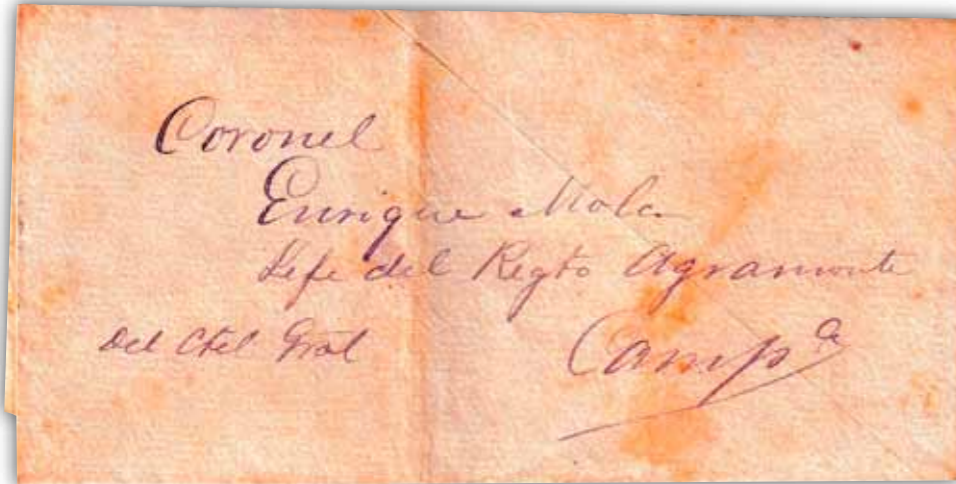 Coronel
Enrique Mola
Jefe del Regto Agramonte
Del Ctel Gral
Camp<sup>a</sup>